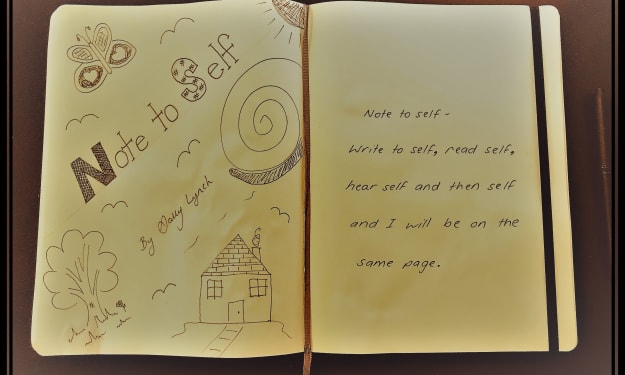 Note to Self
By Sally Lynch
Note to self -
Write to self, read self,
hear self and then self
and I will be on the
same page.